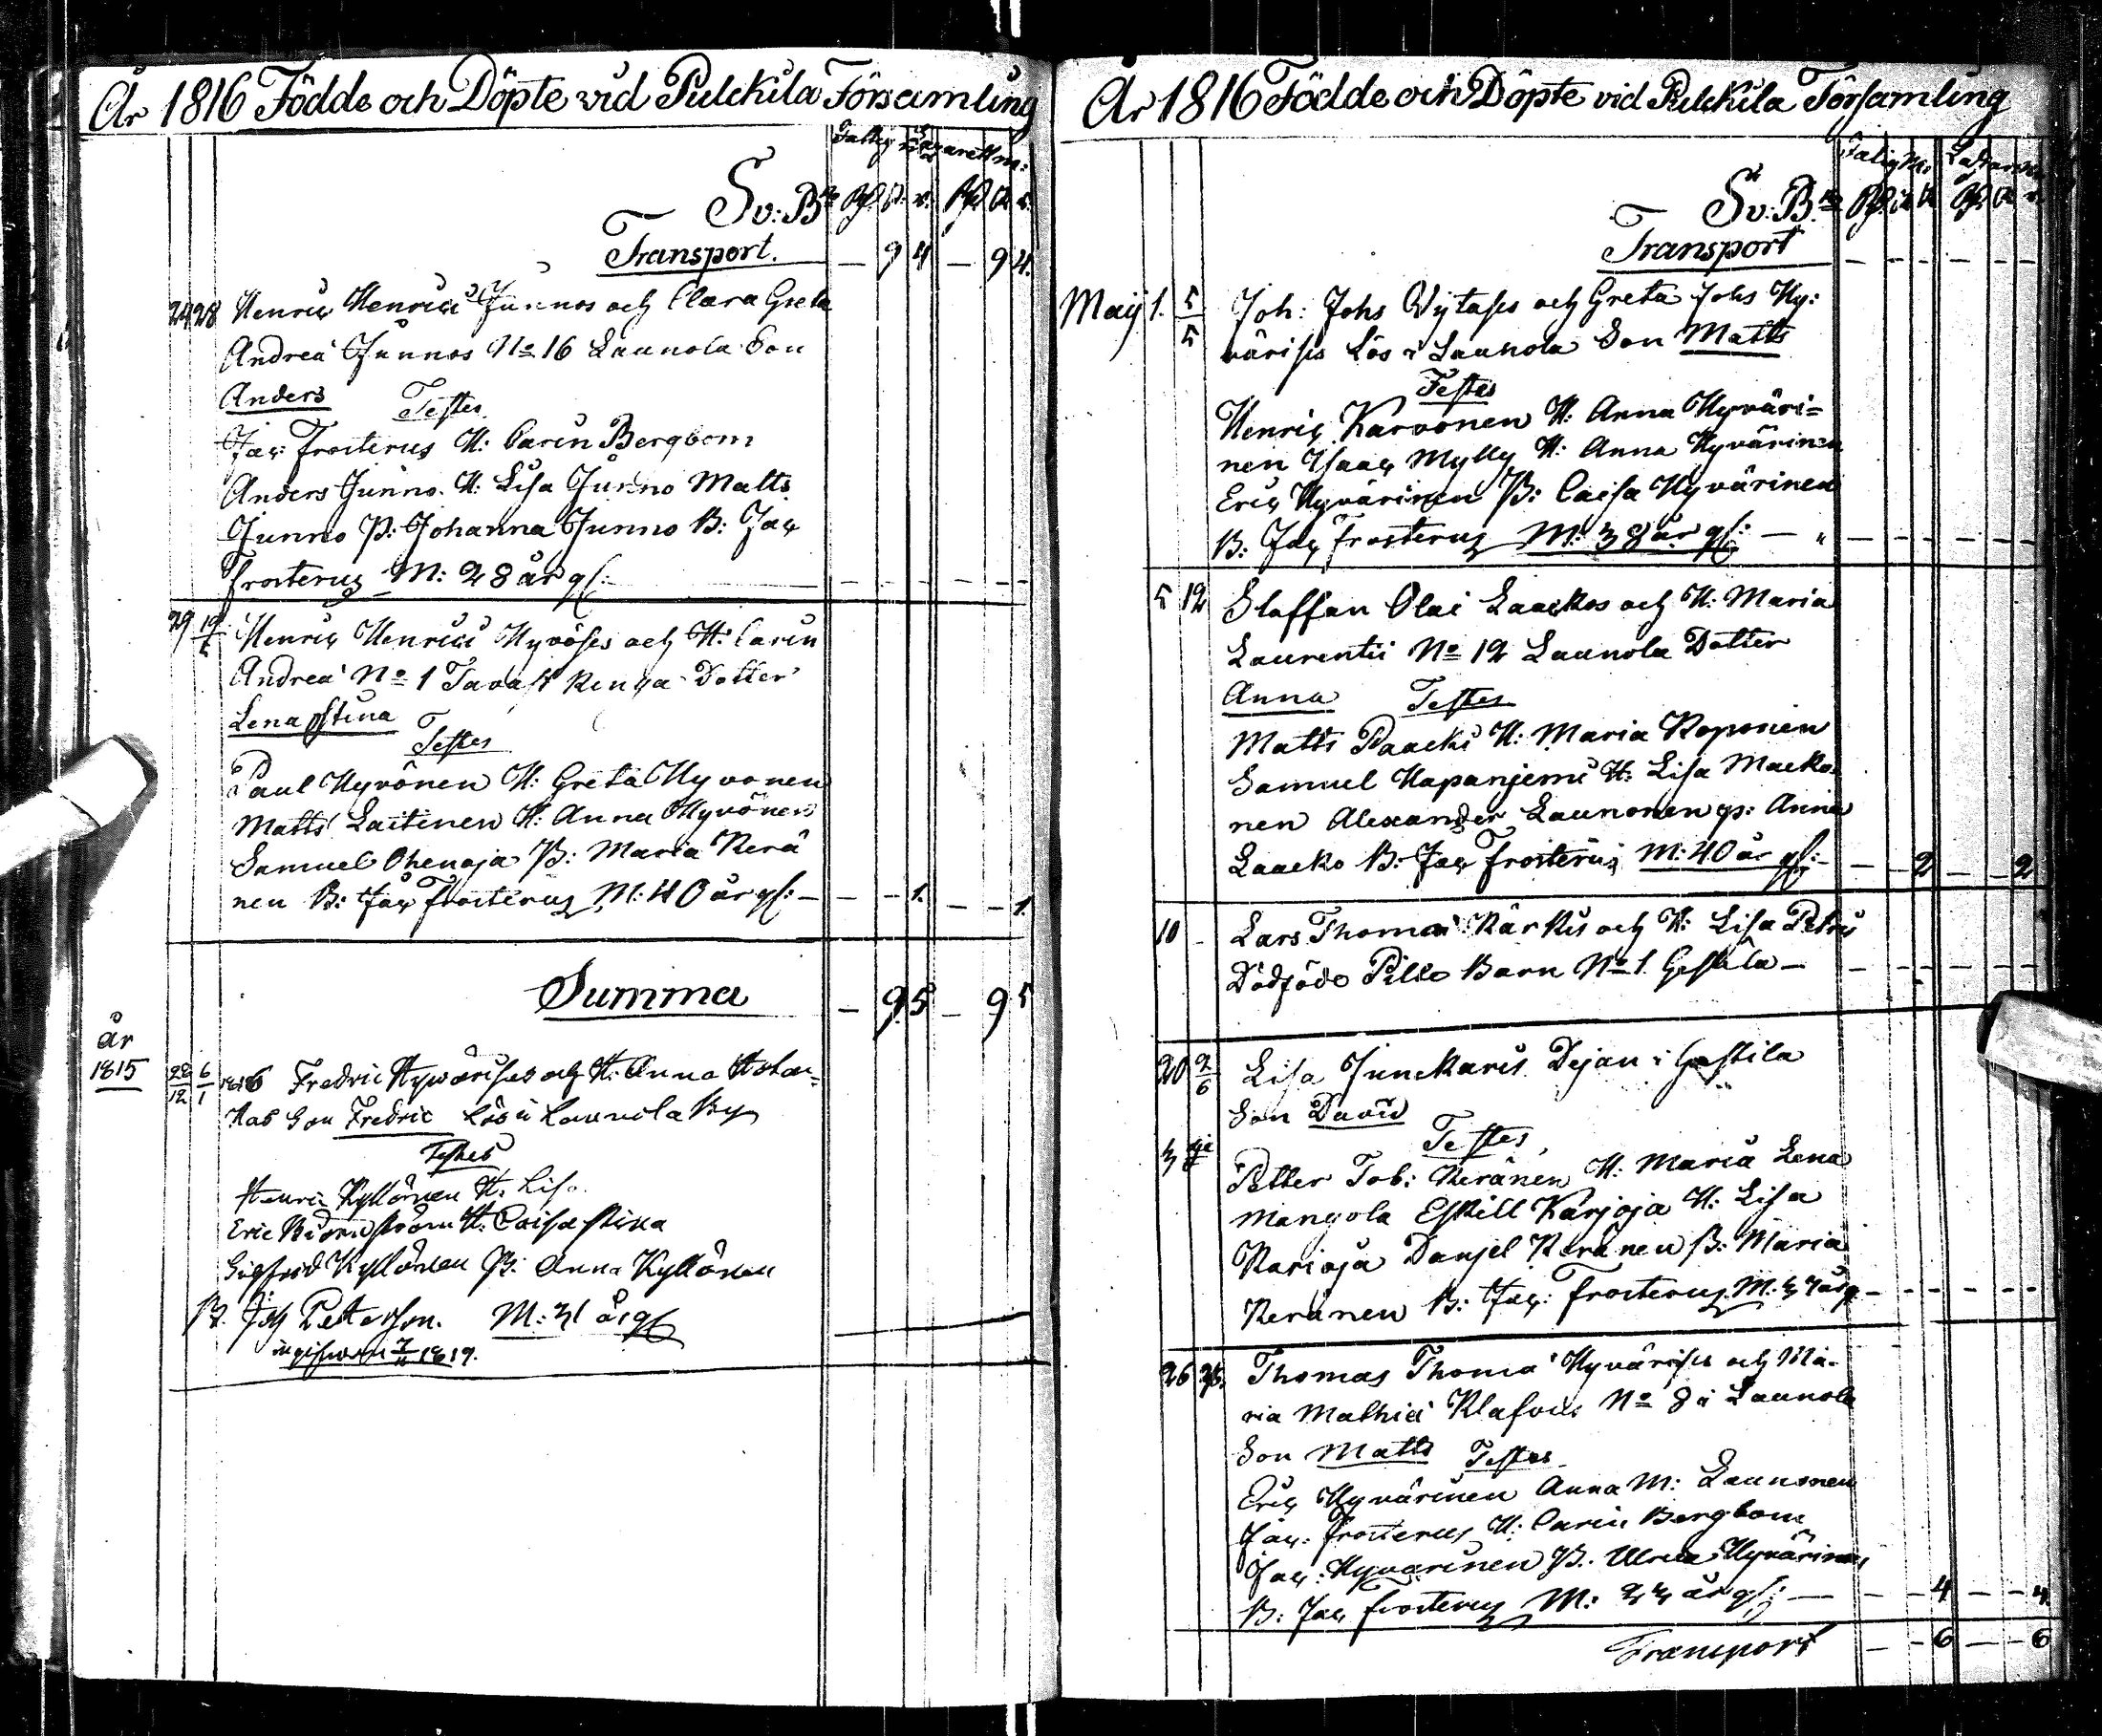 År 1816 Födde och Döpte vid Pulckila Församling
Sv: B
Transport. — 9 4 — 9 4.
24 28 Henric Henrici Junnos och Clara Greta
Andreæ Junnos No 16 Launola Son
Anders Testes
Jac: Frosterus H: Carin Bergbom
Anders Junno. H: Lisa Junno Matts
Junno P: Johanna Junno B: Jac
Frosterus M: 28 år gl:
29 Henric Henrici Hyvöses och H: Carin
Andreæ No 1 Dotter
Lena Stina
Testes
Paul Hyvönen H: Greta Hyvönen
Matts Laitinen H: Anna Hyvönen
Samuel Ohenoja P: Maria Kerä
nen B: Jac Frosterus M: 40 år gl: — — 1. — — 1.
Summa — 9 5 — 9 5
år
1815
28/12 6/1 1816 Fredric Hyvärises och H. Anna
Son Fredric Lös i Launola By
Testes
Henric Kyllönen H. Lisa
Eric H. Caisa Stina
Sigfrid Kyllönen P: Anna Kyllönen
B. Joh Peterson. M: 31 år gl
1819.
År 1816 Födde och Döpte vid Pulckila Församling
Sv: B
Transport
Maij 1. 5/5 Joh: Johs och Greta Johs Hy:
värises Lös i Launola Son Matts
Testes
Henric Karvonen H: Anna Hyväri=
nen Isaac Mylly H: Anna Hyvärinen
Eric Hyvärinen P: Caisa Hyvärinen
B: Jac Frosterus M: 38 år gl:
5 12 Staffan Olai Laackos och H: Maria
Laurentii No 12 Launola Dotter
Anna Testes
Matts Paacki H: Maria Roponen
Samuel Hapaniemi H: Lisa
nen Alexander Launonen P: Anna
Laacko B: Jac Frosterus M: 40 år gl: — — 2 — — 2
10 - Lars Thomæ Kärkis och H: Lisa Petri
Dödföde Pilte Barn No 1. Gestila —
20 2/6 Lisa Junckaris Dejan i Gestila
Son David
Testes
Petter Tob: Keränen H: Maria Lena
Mangola Eskill Karjoja H: Lisa
Karioja Danjel Keränen P: Maria
Keränen B: Jac: Frosterus M:
26 Thomas Thomæ Hyvärises och Ma-
ria Mathiæ No 8 i Launola
Son Matts Testes
Eric Hyvärinen Anna M: Launonen
Jac: Frosterus H: Carin Bergbom
Jac: Hyvärinen P: Ulrica Hyvärinen
B: Jac Frosterus M: år gl: — — 4 — — 4
Transport — — 6 — — 6